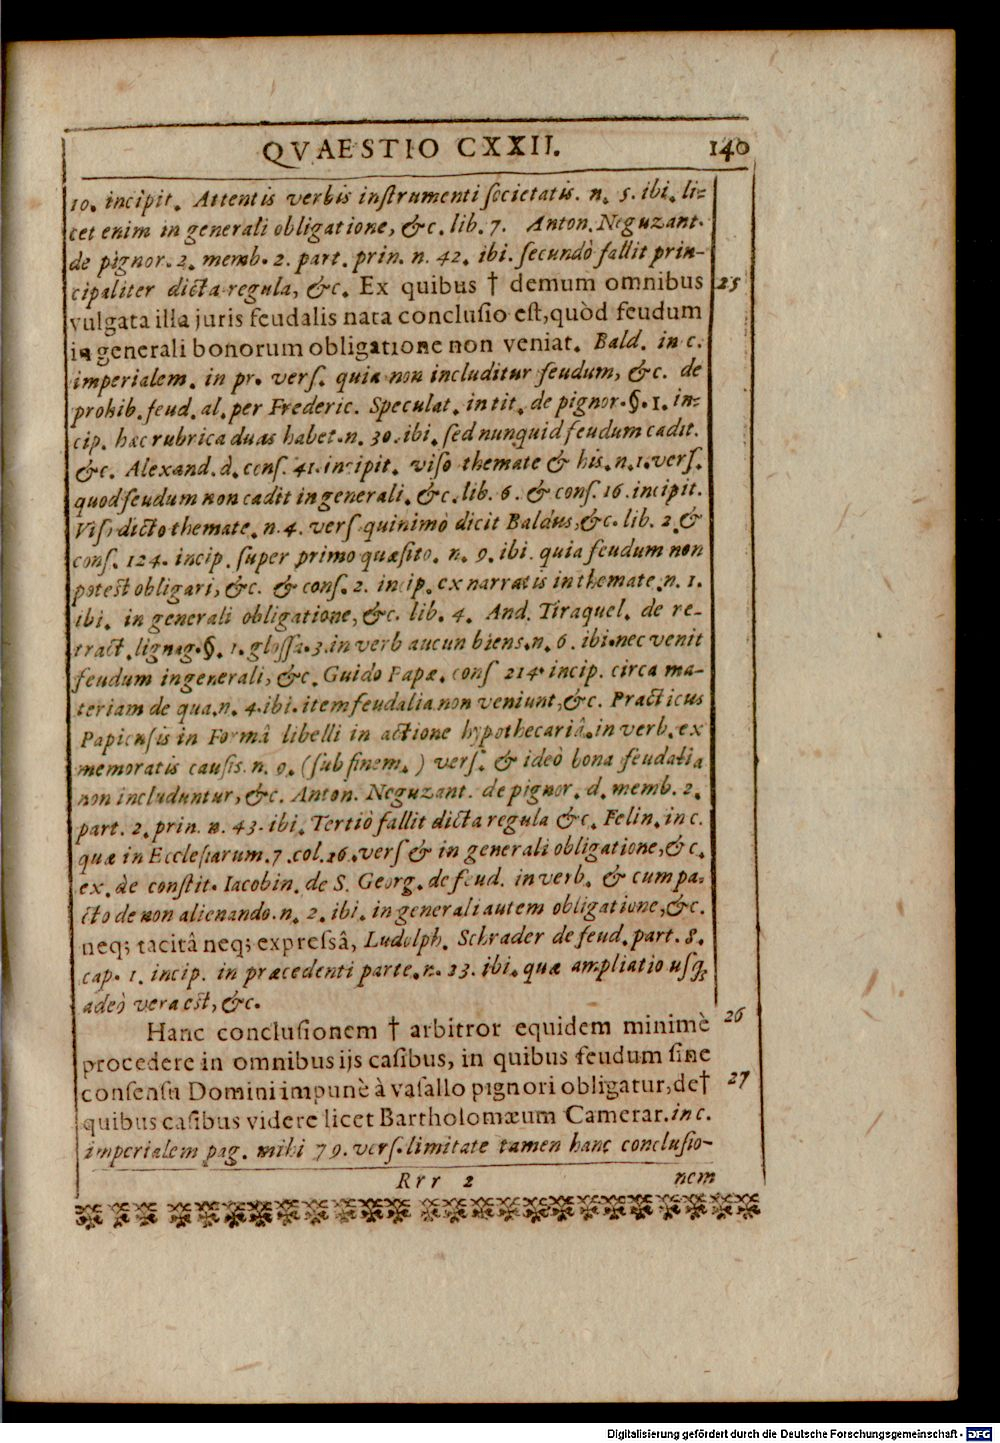 QVAESTIO CXXII. 140
10. incipit. Attentis verbis instrumenti societatis. n. 5. ibi. li-
cet enim in generali obligatione, &c. lib. 7. Anton. Neguzant.
de pignor. 2. memb. 2. part. prin. n. 42. ibi. secundò fallit prin-
cipaliter dicta regula, &c. Ex quibus † demum omnibus 25
vulgata illa juris feudalis nata conclusio est, quòd feudum
in generali bonorum obligatione non veniat. Bald. in c.
imperialem. in pr. vers. quia non includitur feudum, &c. de
prohib. feud. al. per Frederic. Speculat. in tit. de pignor. §. 1. in-
cip. hæc rubrica duas habet. n. 30. ibi. sed nunquid feudum cadit.
&c. Alexand. d. cons. 41. incipit. viso themate & his. n. 1. vers.
quod feudum non cadit in generali. &c. lib. 6. & cons. 16. incipit.
Viso dicto themate. n. 4. vers quinimò dicit Baldus, &c. lib. 2. &
cons. 124. incip. super primo quæsito. n. 9. ibi. quia feudum non
potest obligari, &c. & cons. 2. incip. ex narratis in themate. n. 1.
ibi. in generali obligatione, &c. lib. 4. And. Tiraquel. de re-
tract. lignag. §. 1. glossa. 3. in verb aucun biens. n. 6. ibi. nec venit
feudum in generali, &c. Guido Papæ. cons 214. incip. circa ma-
teriam de qua. n. 4. ibi. item feudalia non veniunt, &c. Practicus
Papiensis in Formâ libelli in actione hypothecariâ. in verb. ex
memoratis causis. n. 9. (sub finem.) vers. & ideò bona feudalia
non includuntur, &c. Anton. Neguzant. de pignor. d. memb. 2.
part. 2. prin. n. 43. ibi. Tertiò fallit dicta regula &c. Felin. in c.
quæ in Ecclesiarum. 7. col. 26. vers & in generali obligatione, &c.
ex. de constit. Iacobin. de S. Georg. de feud. in verb. & cum pa-
cto de non alienando. n. 2. ibi. in generali autem obligatione, &c.
neq; tacitâ neq; expressâ, Ludolph. Schrader de feud. part. 8.
cap. 1. incip. in præcedenti parte. n. 23. ibi. quæ ampliatio usq;
adeò vera est, &c.
Hanc conclusionem † arbitror equidem minimè 26
procedere in omnibus ijs casibus, in quibus feudum sine
consensu Domini impunè à vasallo pignori obligatur, de † 27
quibus casibus videre licet Bartholomæum Camerar. in c.
imperialem pag. mihi 79. vers. limitate tamen hanc conclusio-
Rrr 2 nem
Digitalisierung gefördert durch die Deutsche Forschungsgemeinschaft - DFG